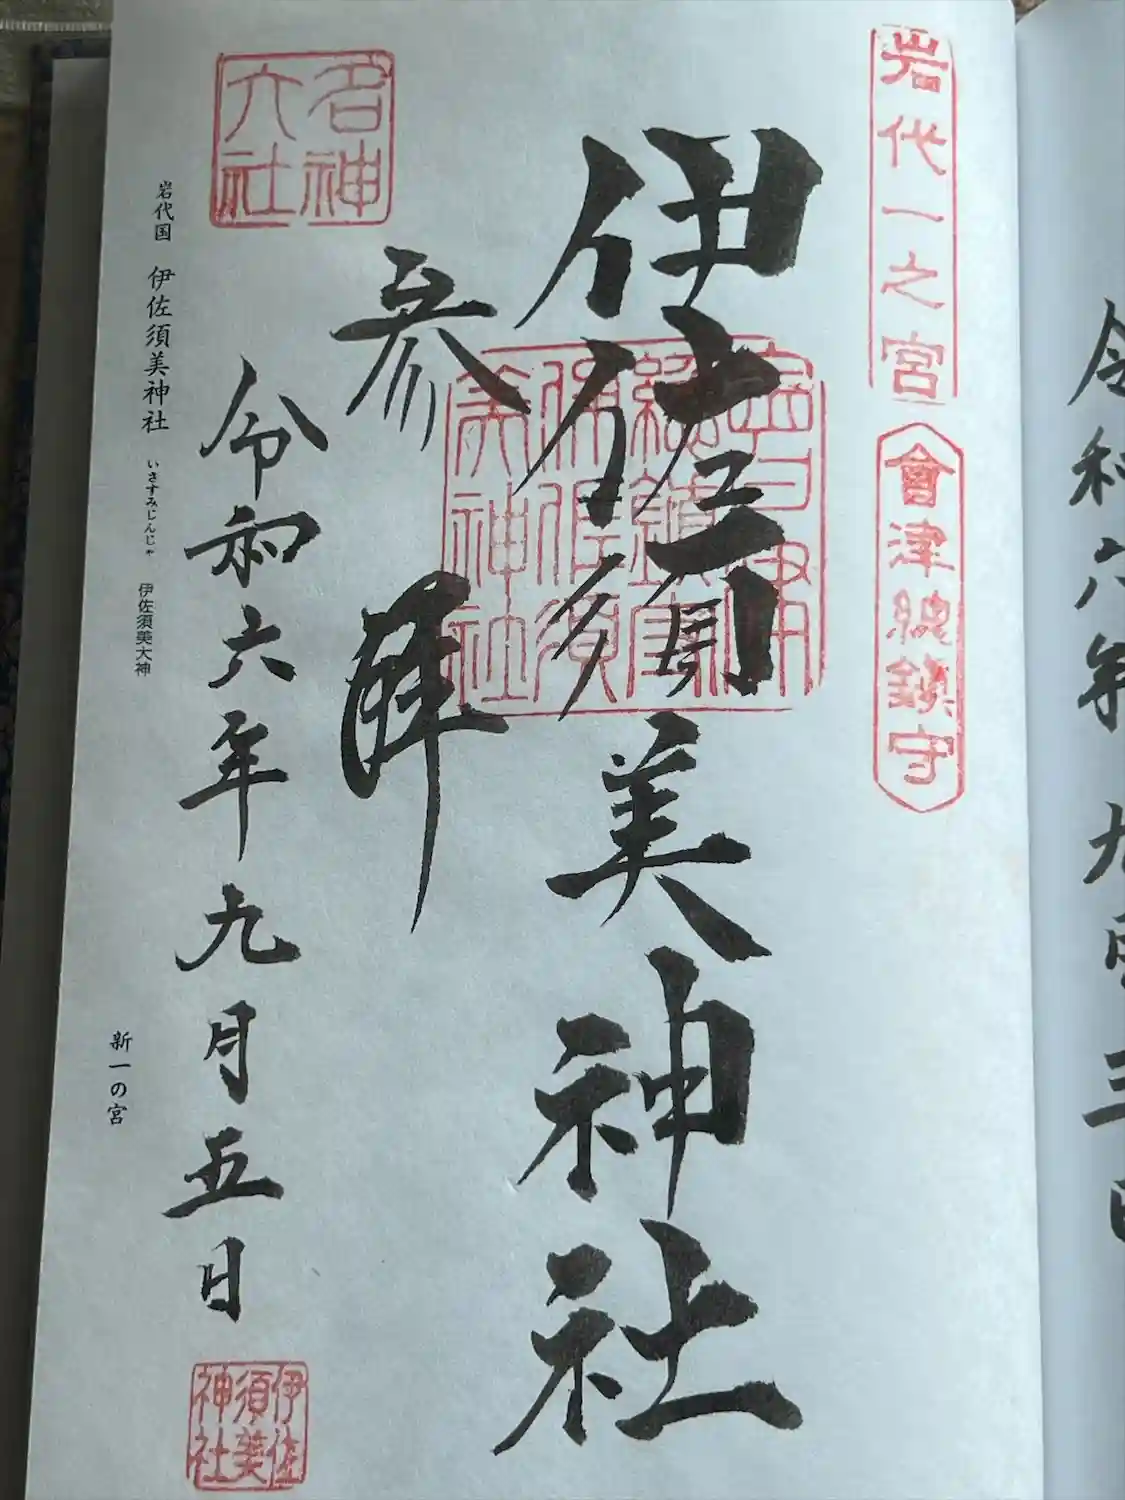 令和六年九月三日
岩代一之宮
會津總鎮守
伊佐須美神社
參拜
名神大社
令和六年九月五日
伊佐須美神社
岩代国 伊佐須美神社 いさすみじんじゃ 伊佐須美大神
新一の宮